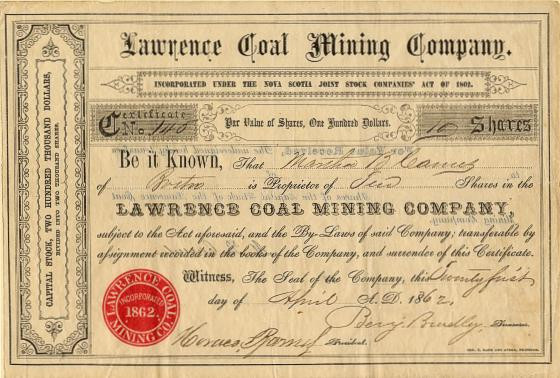 Lawrence Coal Mining Company.
INCORPORATED UNDER THE NOVA SCOTIA JOINT STOCK COMPANIES' ACT OF 1862.
CAPITAL STOCK, TWO HUNDRED THOUSAND DOLLARS,
DIVIDED INTO TWO THOUSAND SHARES.
Certificate
No. 140
Par Value of Shares, One Hundred Dollars.
10 Shares
Be it Known, That Martha B
of Boston is Proprietor of Ten Shares in the
LAWRENCE COAL MINING COMPANY,
subject to the Act aforesaid, and the By-Laws of said Company; transferable by
assignment recorded in the books of the Company, and surrender of this Certificate.
Witness, The Seal of the Company, this twenty first
day of April A. D. 1862.
LAWRENCE COAL
INCORPORATED
1862.
MINING CO.
Benj. Bradley, Treasurer.
Horace President.